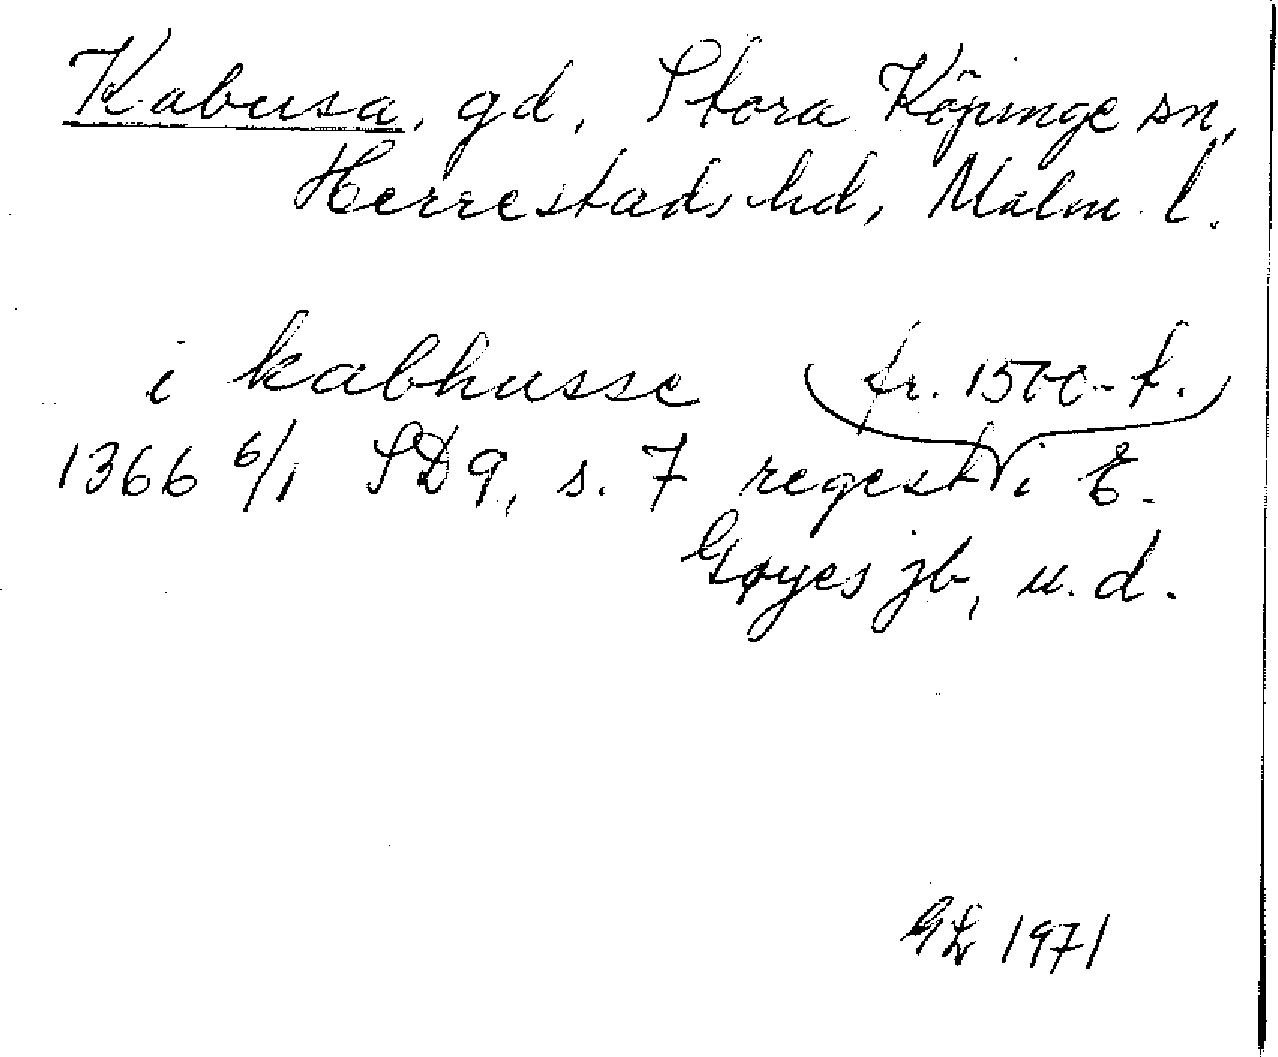 Kabusa, gd, Stora Köpinge sn,
Herrestads hd, Malm. l.
i kabhusse (fr. 1500-t.)
1366 6/1 SD 9, s. 7 regest i E.
Gøyes jb, u.d.
GL 1971